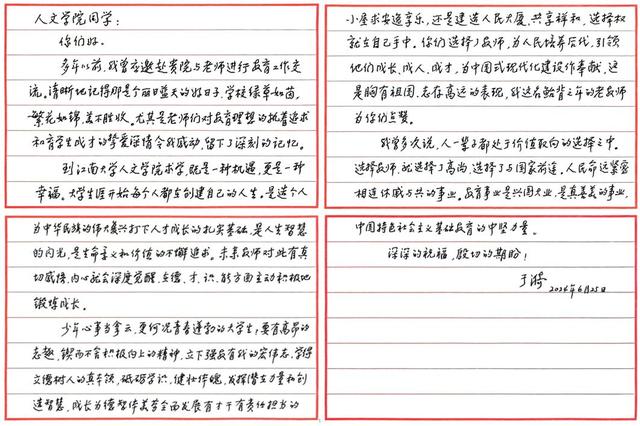 人文学院同学：
你们好。
多年以前，我曾应邀赴贵院与老师进行教育工作交
流。清晰地记得那是个丽日蓝天的好日子，学校绿草如茵，
繁花如锦，美不胜收。尤其是老师们对教育理想的执着追求
和育学生成才的挚爱深情令我感动，留下了深刻的记忆。
到江南大学人文学院求学，既是一种机遇，更是一种
幸福。大学生涯开始每个人都在创建自己的人生。是造个人
小屋求安逸享乐，还是建造人民大厦，共享祥和，选择权
就在自己手中。你们选择了教师，为人民培养后代，引领
他们成长、成人、成才，为中国式现代化建设作奉献，这
是胸有祖国，志存高远的表现，我这名鲐背之年的老教师
为你们点赞。
我曾多次说，人一辈子都处于价值取向的选择之中。
选择教师，就选择了高尚，选择了与国家前途、人民命运紧密
相连休戚与共的事业。教育事业是兴国大业，是真善美的事业，
为中华民族的伟大复兴打下人才成长的扎实基础，是人生智慧
的闪光，是生命意义和价值的不懈追求。未来教师对此有真
切感悟，内心就会深度觉醒，在德、才、识、能方面主动积极地
锻炼成长。
少年心事当拏云，更何况青春蓬勃的大学生！要有高昂的
志趣，锲而不舍积极向上的精神，立下强教有我的宏伟志，学得
立德树人的真本领，砥砺学识，健壮体魄，发挥潜在力量和创
造智慧，成长为德智体美劳全面发展有才干有责任担当的
中国特色社会主义基础教育的中坚力量。
深深的祝福，殷切的期盼！
于漪
2024年6月25日